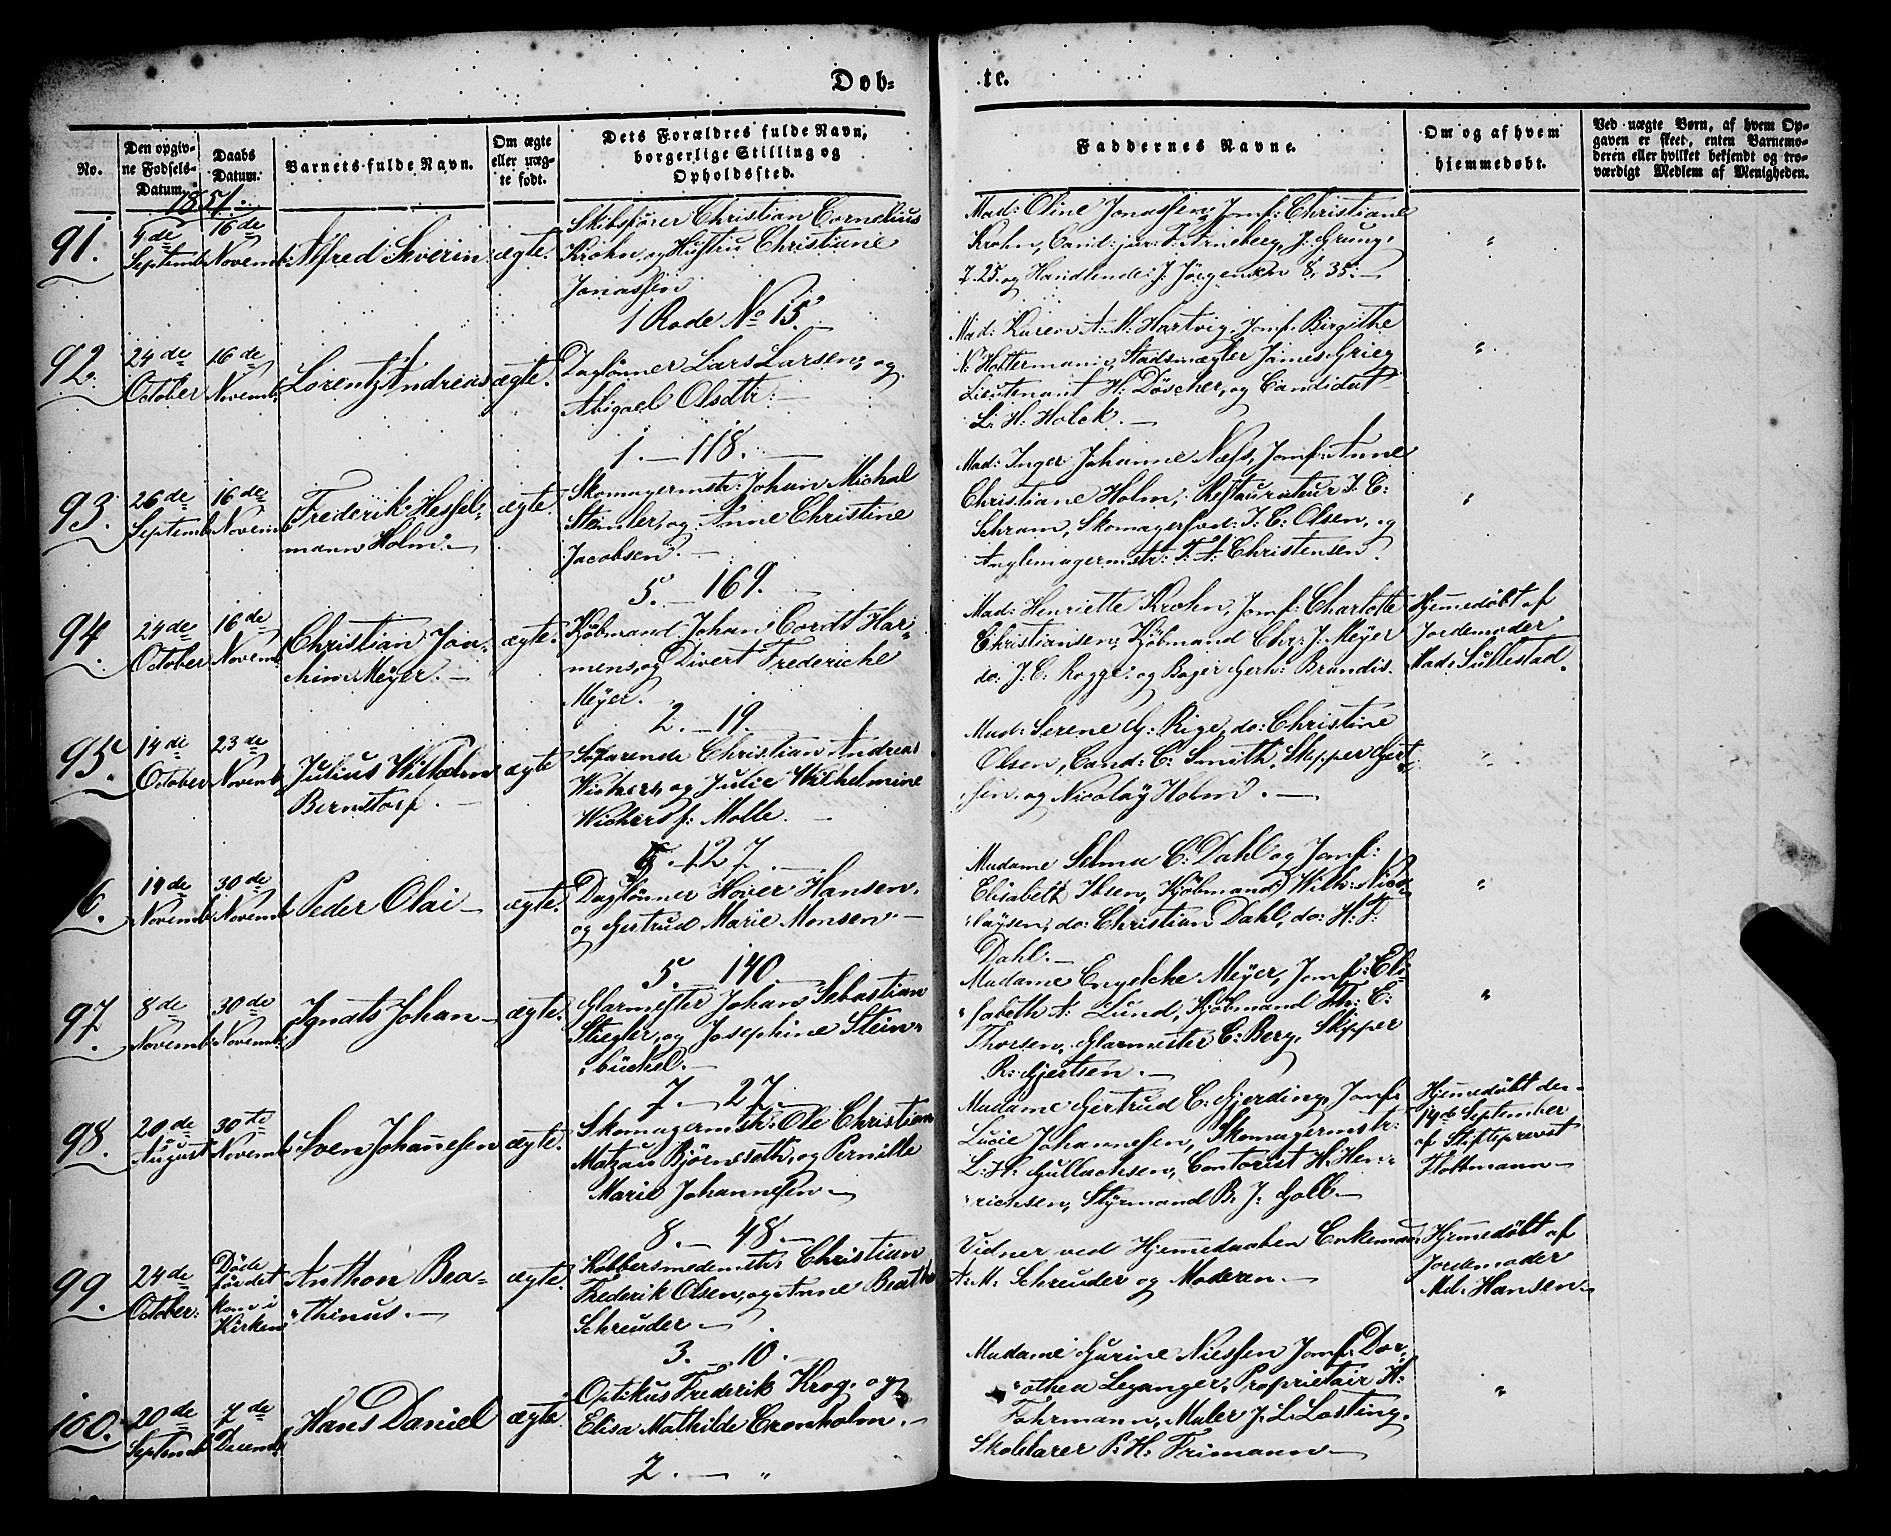 Døb-
te.
No.
Den opgiv-
ne Fødsels-
Datum.
Daabs
Datum.
Barnets fulde Navn.
Om ægte
eller uæg-
te født.
Dets Forældres fulde Navn,
borgerlige Stilling og
Opholdssted.
Faddernes Navne.
Om og af hvem
hjemmedøbt.
Ved uægte Børn, af hvem Op-
gaven er skeet, enten Barnemo-
deren eller hvilket bekjendt og tro-
værdigt Medlem af Menigheden.
1851.
91.
9de
Septemb:
16de
Novemb:
Alfred Severin
ægte.
Skibsfører Christian Cornelius
Krohn, og Hustru Christiane
Jonassen
1 Rode No 15.
Mad: Oline Jonassen, Jomf: Christiane
Krohn, Cand: jur: Arneberg, J: Grung,
og Handlende J. Jørgensen 35.
"
92.
24de
October
16de
Novemb:
Lorentz Andreas
ægte.
Daglønner Lars Larsen, og
Abigael Olsdtr:
1. — 118.
Mad: Karen A: M: Hartvig, Jomf: Birgithe
N: Holtermann, Stadsmægler James Grieg
Lieutenant H: Döscher, og Candidat
L: H: Holck.
"
93.
26de
Septemb:
16de
Novemb:
Frederik Hessel-
mann Holm.
ægte.
Skomagermstr: Johan Michal
Stemler, og Anne Christine
Jacobsen.
5. — 169.
Mad: Inger Johanne Næss, Jomf: Anne
Christiane Holm, Restauratur J. C:
Schram, Skomagersvd: J. C: Olsen, og
Anglemagermstr: T. A: Christensen.
"
94.
24de
October
16de
Novemb:
Christian Joa-
chim Meyer.
ægte.
Kjøbmand Johan Cordt Har-
mens, og Divert Frederiche
Meyer.
2. — 19.
Mad: Henriette Krohn, Jomf: Charlotte
Christiansen, Kjøbmand Chr: J: Meyer
do: J. C: Rogge, og Bager Gerh: Brandis.
Hjemmedøbt af
Jordemoder
Mad: Sullestad.
95.
14de
October
23de
Novemb:
Julius Wilhelm
Bernstorf.
ægte
Søfarende Christian Andreas
Wichers, og Julie Wilhelmine
Wichers f: Molle.
5. — 127.
Mad: Serene G: Rige, do: Christine
Olsen, Cand: C: Smith, Skipper Gert-
sen, og Nicolay Holm.
"
96.
14de
Novemb:
30de
Novemb:
Peder Olai
ægte.
Daglønner Hover Hansen,
og Gertrud Marie Monsen.
5. 140.
Madame Selma C: Dahl og Jomf:
Elisabeth Ibsen, Kjøbmand Wilh: Nico-
laysen, do: Christian Dahl, do: H: F:
Dahl.
"
97.
8de
Novemb:
30de
Novemb:
Ignats Johan
ægte.
Glarmester Johan Sebastian
Stiegler, og Josephine Stein-
büchel.
7. — 27.
Madame Engelche Meyer, Jomf: Eli-
sabeth A: Lund, Kjøbmand Th: C:
Thoesen, Glarmester C: Berg, Skipper
R: Gjertsen.
"
98.
20de
August
30te
Novemb:
Sven Johannesen
ægte.
Skomagermstr: Ole Christian
Matzau Bjørnseth, og Pernille
Marie Johannesen
8. — 48.
Madame Gertrud C: Gjerding, Jomf:
Lucie Johannesen, Skomagermstr:
L: H: Gullachsen, Contorist H: Hen-
richsen, Styrmand B. J: Goll.
Hjemmedøbt den
14de September
af Stiftsprovst
Flottmann.
99.
24de
October:
Døde
før det
kom i
Kirken
Anthon Bea-
thinus.
ægte.
Kobbersmedemstr: Christian
Frederik Olsen, og Anne Beathe
Schreuder.
3. — 10.
Vidner ved Hjemmedaaben Enkemad:
A: M: Schreuder og Moderen.
Hjemmedøbt af
Jordemoder
Md: Hansen.
100.
20de
Septemb:
7de
Decemb:
Hans Daniel
ægte.
Optikus Frederik Krog, og
Elisa Mathilde Cronholm.
2. — "
Madame Gurine Nielsen Jomf: Dor-
othea Leganger, Proprietair H:
Fährmann, Maler J. L: Losting,
Skolelærer P: H: Frimann
"